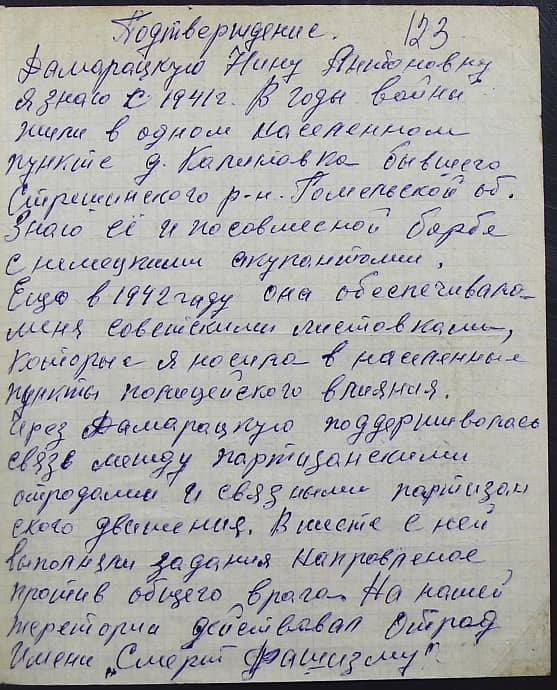 Подтверждение. 123
Дамарацкую Нину Антоновну
я знаю с 1941г. В годы войны
жили в одном населенном
пункте д. Калиновка бывшего
Стрешинского р-н. Гомельской об.
Знаю её и по совмесной борбе
с немецкими окупантами.
Ещо в 1942 году она обеспечивала
меня советскими листовками,
которые я носила в населенные
пункты полицейского влияния.
Через Дамарацкую поддерживолась
связь между партизанскими
отродами и связными партизан
ского движения. Вместе с ней
выполняли задания напровленое
против общего врага. На нашей
теретории действовал отряд
имени „Смерт фашизму".